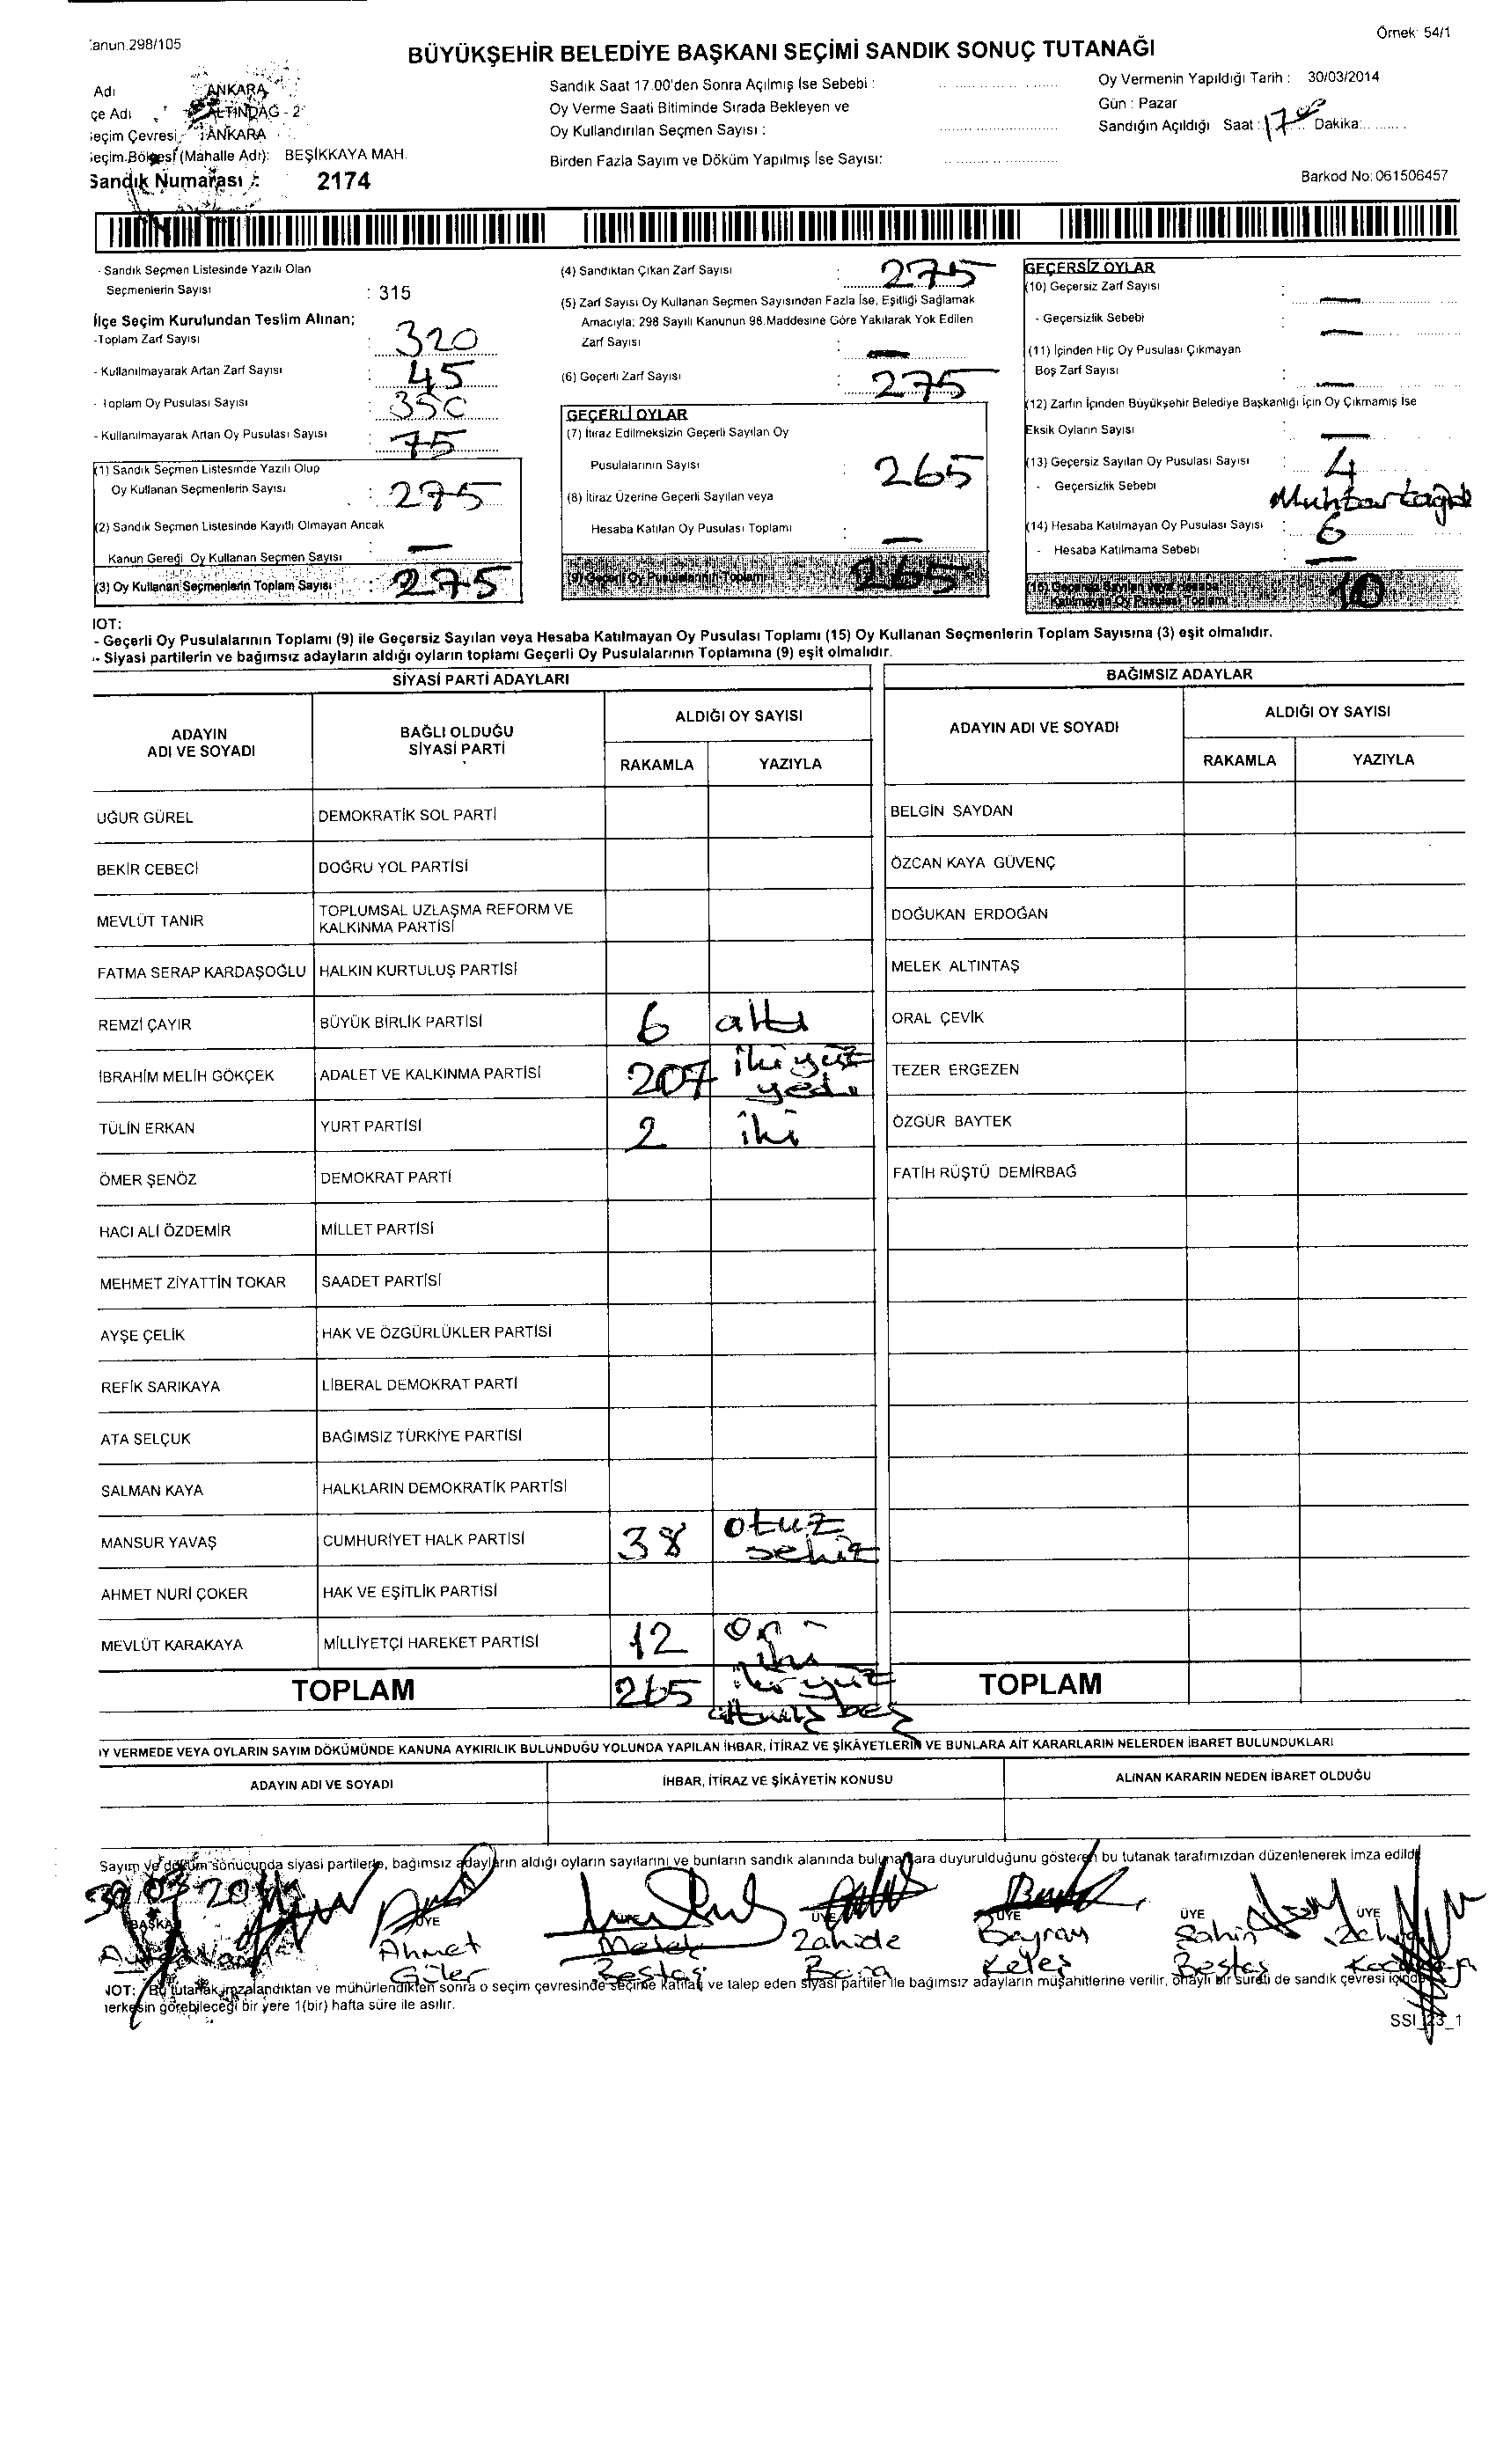 Kanun:298/105
Örnek: 54/1
BÜYÜKŞEHİR BELEDİYE BAŞKANI SEÇİMİ SANDIK SONUÇ TUTANAĞI
Adı ANKARA
çe Adı ALTINDAĞ - 2
eçim Çevresi ANKARA
eçim.Bölgesi (Mahalle Adı): BEŞİKKAYA MAH.
Sandık Numarası : 2174
Sandık Saat 17.00'den Sonra Açılmış İse Sebebi :
Oy Verme Saati Bitiminde Sırada Bekleyen ve
Oy Kullandırılan Seçmen Sayısı :
Birden Fazla Sayım ve Döküm Yapılmış İse Sayısı:
Oy Vermenin Yapıldığı Tarih : 30/03/2014
Gün : Pazar
Sandığın Açıldığı Saat : 17 00 Dakika:
Barkod No: 061506457
- Sandık Seçmen Listesinde Yazılı Olan
Seçmenlerin Sayısı : 315
İlçe Seçim Kurulundan Teslim Alınan;
-Toplam Zarf Sayısı : 320
- Kullanılmayarak Artan Zarf Sayısı : 45
- Toplam Oy Pusulası Sayısı : 350
- Kullanılmayarak Artan Oy Pusulası Sayısı : 75
(1) Sandık Seçmen Listesinde Yazılı Olup
Oy Kullanan Seçmenlerin Sayısı : 275
(2) Sandık Seçmen Listesinde Kayıtlı Olmayan Ancak
Kanun Gereği Oy Kullanan Seçmen Sayısı : —
(3) Oy Kullanan Seçmenlerin Toplam Sayısı : 275
(4) Sandıktan Çıkan Zarf Sayısı : 275
(5) Zarf Sayısı Oy Kullanan Seçmen Sayısından Fazla İse, Eşitliği Sağlamak
Amacıyla; 298 Sayılı Kanunun 98.Maddesine Göre Yakılarak Yok Edilen
Zarf Sayısı : —
(6) Geçerli Zarf Sayısı : 275
GEÇERLİ OYLAR
(7) İtiraz Edilmeksizin Geçerli Sayılan Oy
Pusulalarının Sayısı : 265
(8) İtiraz Üzerine Geçerli Sayılan veya
Hesaba Katılan Oy Pusulası Toplamı : —
(9) Geçerli Oy Pusulalarının Toplamı 265
GEÇERSİZ OYLAR
(10) Geçersiz Zarf Sayısı : —
- Geçersizlik Sebebi : —
(11) İçinden Hiç Oy Pusulası Çıkmayan
Boş Zarf Sayısı : —
(12) Zarfın İçinden Büyükşehir Belediye Başkanlığı İçin Oy Çıkmamış İse
Eksik Oyların Sayısı : —
(13) Geçersiz Sayılan Oy Pusulası Sayısı : 4
- Geçersizlik Sebebi Muhtar
(14) Hesaba Katılmayan Oy Pusulası Sayısı : 6
- Hesaba Katılmama Sebebi : —
(15) Geçersiz Sayılan veya Hesaba
Katılmayan Oy Pusulası Toplamı 10
NOT:
- Geçerli Oy Pusulalarının Toplamı (9) ile Geçersiz Sayılan veya Hesaba Katılmayan Oy Pusulası Toplamı (15) Oy Kullanan Seçmenlerin Toplam Sayısına (3) eşit olmalıdır.
- Siyasi partilerin ve bağımsız adayların aldığı oyların toplamı Geçerli Oy Pusulalarının Toplamına (9) eşit olmalıdır.
SİYASİ PARTİ ADAYLARI
ADAYIN ADI VE SOYADI BAĞLI OLDUĞU SİYASİ PARTİ ALDIĞI OY SAYISI
RAKAMLA YAZIYLA
UĞUR GÜREL DEMOKRATİK SOL PARTİ
BEKİR CEBECİ DOĞRU YOL PARTİSİ
MEVLÜT TANIR TOPLUMSAL UZLAŞMA REFORM VE
KALKINMA PARTİSİ
FATMA SERAP KARDAŞOĞLU HALKIN KURTULUŞ PARTİSİ
REMZİ ÇAYIR BÜYÜK BİRLİK PARTİSİ 6 altı
İBRAHİM MELİH GÖKÇEK ADALET VE KALKINMA PARTİSİ 207 ikiyüz yedi
TÜLİN ERKAN YURT PARTİSİ 2 iki
ÖMER ŞENÖZ DEMOKRAT PARTİ
HACI ALİ ÖZDEMİR MİLLET PARTİSİ
MEHMET ZİYATTİN TOKAR SAADET PARTİSİ
AYŞE ÇELİK HAK VE ÖZGÜRLÜKLER PARTİSİ
REFİK SARIKAYA LİBERAL DEMOKRAT PARTİ
ATA SELÇUK BAĞIMSIZ TÜRKİYE PARTİSİ
SALMAN KAYA HALKLARIN DEMOKRATİK PARTİSİ
MANSUR YAVAŞ CUMHURİYET HALK PARTİSİ 38 otuz sekiz
AHMET NURİ ÇOKER HAK VE EŞİTLİK PARTİSİ
MEVLÜT KARAKAYA MİLLİYETÇİ HAREKET PARTİSİ 12 on iki
TOPLAM 265 ikiyüz altmış beş
BAĞIMSIZ ADAYLAR
ADAYIN ADI VE SOYADI ALDIĞI OY SAYISI
RAKAMLA YAZIYLA
BELGİN SAYDAN
ÖZCAN KAYA GÜVENÇ
DOĞUKAN ERDOĞAN
MELEK ALTINTAŞ
ORAL ÇEVİK
TEZER ERGEZEN
ÖZGÜR BAYTEK
FATİH RÜŞTÜ DEMİRBAĞ
TOPLAM
OY VERMEDE VEYA OYLARIN SAYIM DÖKÜMÜNDE KANUNA AYKIRILIK BULUNDUĞU YOLUNDA YAPILAN İHBAR, İTİRAZ VE ŞİKÂYETLERİN VE BUNLARA AİT KARARLARIN NELERDEN İBARET BULUNDUKLARI
ADAYIN ADI VE SOYADI İHBAR, İTİRAZ VE ŞİKÂYETİN KONUSU ALINAN KARARIN NEDEN İBARET OLDUĞU
Sayım ve döküm sonucunda siyasi partilerle, bağımsız adayların aldığı oyların sayılarını ve bunların sandık alanında bulunanlara duyurulduğunu gösteren bu tutanak tarafımızdan düzenlenerek imza edildi
30/03/2014
BAŞKAN ÜYE ÜYE ÜYE ÜYE ÜYE ÜYE
Ahmet Melek Zahide Bayram Şahin
Güler Beştaş Bora Keleş Beştaş
NOT: Bu tutanak imzalandıktan ve mühürlendikten sonra o seçim çevresinde seçime katılan ve talep eden siyasi partiler ile bağımsız adayların müşahitlerine verilir, onaylı bir sureti de sandık çevresi içinde
herkesin görebileceği bir yere 1(bir) hafta süre ile asılır.
SSI_23_1